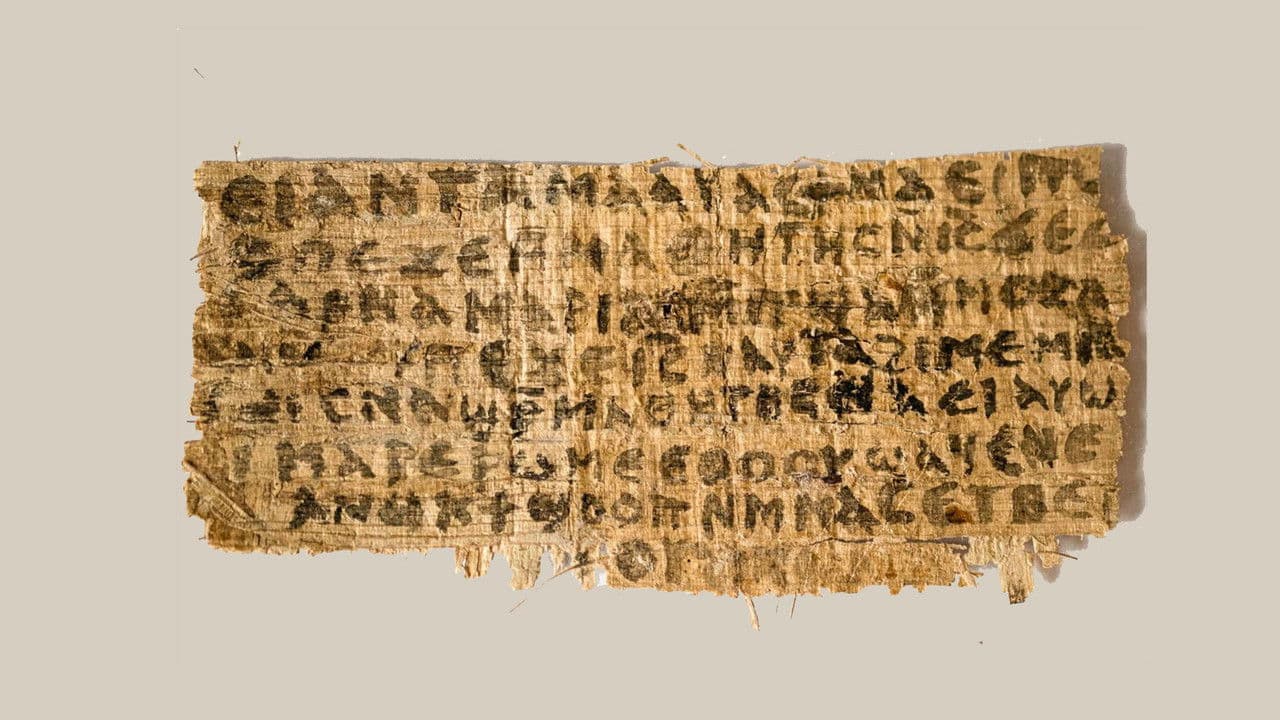 ⲉⲓ ⲁⲛ ⲧⲁⲙⲁⲁⲩ ⲁⲥϯ ⲛⲁⲉⲓ ⲡ
ⲡⲉϫⲉ ⲙⲙⲁⲑⲏⲧⲏⲥ ⲛ̄ⲓ̄ⲥ̄ ϫⲉ ⲥ
ⲁⲣⲛⲁ ⲙⲁⲣⲓⲁⲙ ⲙ̄ⲡϣⲁ
ⲡⲉϫⲉ ⲓ̄ⲥ̄ ⲛⲁⲩ ⲧⲁϩⲓⲙⲉ ⲙⲛ
ⲥⲛⲁϣⲣ̄ⲙⲁⲑⲏⲧⲏⲥ ⲛⲁⲉⲓ ⲁⲩⲱ
ⲙⲁⲣⲉⲣⲱⲙⲉ ⲉⲑⲟⲟⲩ ϣⲁϥⲉ ⲛⲉ
ⲁⲛⲟⲕ ϯϣⲟⲟⲡ ⲛⲙⲙⲁⲥ ⲉⲧⲃⲉ